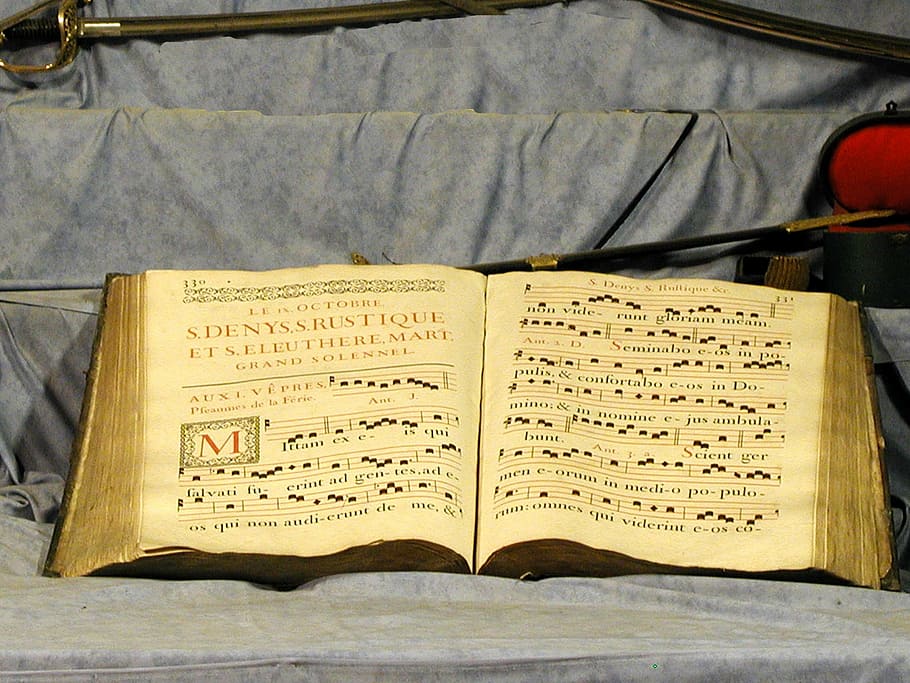 330
LE IX. OCTOBRE.
S. DENYS, S. RUSTIQUE
ET S. ELEUTHERE, MART.
GRAND SOLENNEL.
AUX I. VÊPRES,
Pseaumes de la Férie. Ant. J.
MIttam ex e- is qui
salvati fu- erint ad gen-tes, ad e-
os qui non audi-erunt de me, &
S. Denys S. Rustique &c. 331
non vide- runt gloriam meam.
Ant. 2. D. Seminabo e-os in po-
pulis, & confortabo e-os in Do-
mino: & in nomine e- jus ambula-
bunt. Ant. 3. a. Scient ger
men e-orum in medi-o po-pulo-
rum: omnes qui viderint e-os co-